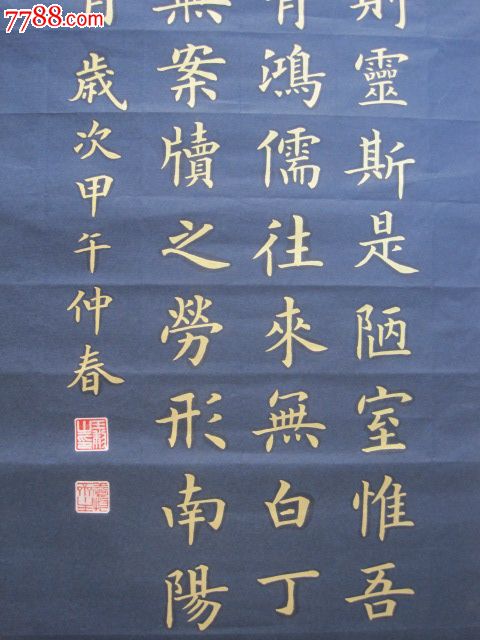 7788.com
則靈斯是陋室惟吾
有鴻儒往來無白丁
無案牘之勞形南陽
歲次甲午仲春